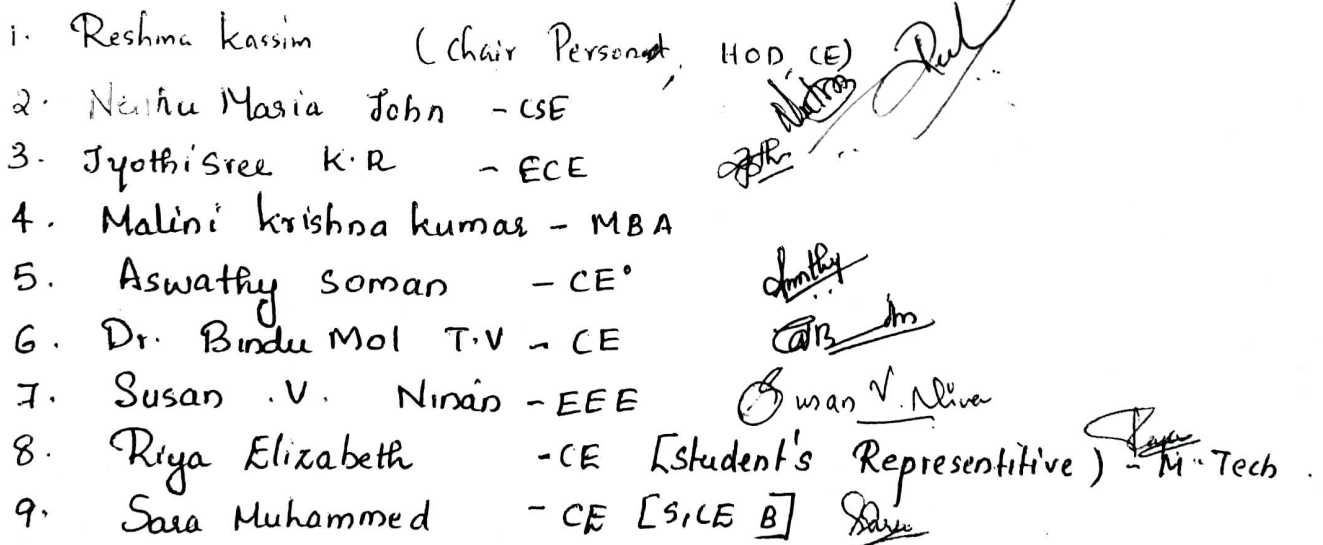 1. Reshma Kassim (Chair Person, HOD, CE)
2. Maria John - CSE
3. Jyothisree K.R - ECE
4. Malini Krishna kumar - MBA
5. Aswathy Soman - CE
6. Dr. Bindu Mol T.V - CE
7. Susan .V. Ninan - EEE Susan V. Ninan
8. Riya Elizabeth - CE [student's Representitive) - M-Tech.
9. Sara Muhammed - CE [S1CE B] Sara